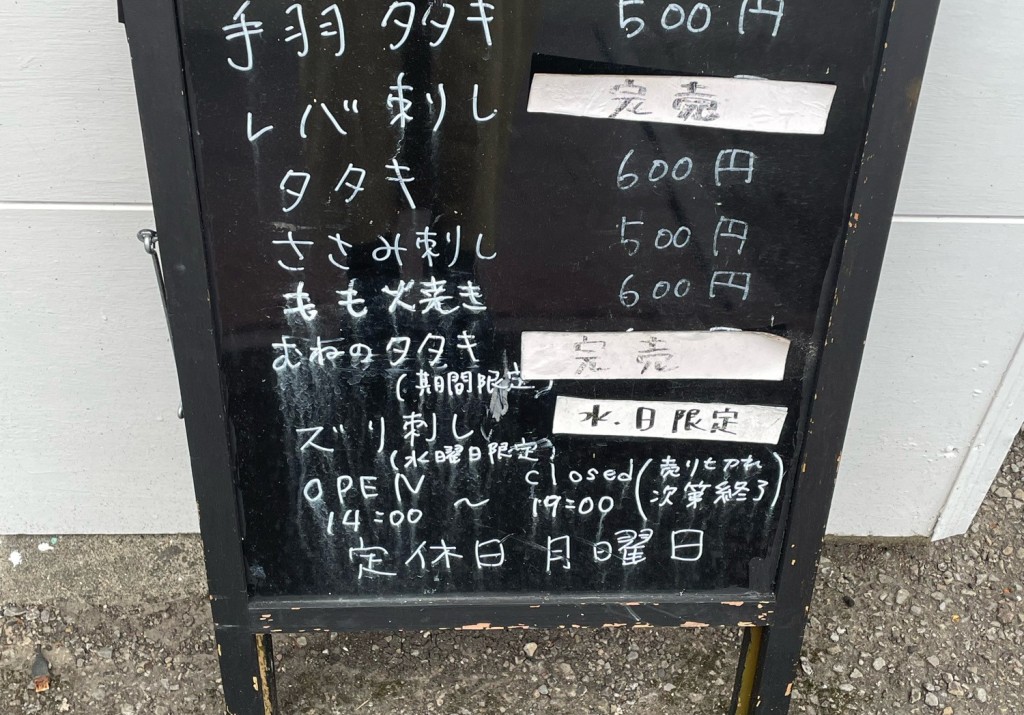 手羽 タタキ 500円
レバ刺し 完売
タタキ 600円
ささみ刺し 500円
もも火焼き 600円
むねのタタキ 完売
(期間限定)
ズリ刺し 水.日限定
(水曜日限定)
OPEN 14:00 〜 closed 19:00 (売り切れ次第終了)
定休日 月曜日